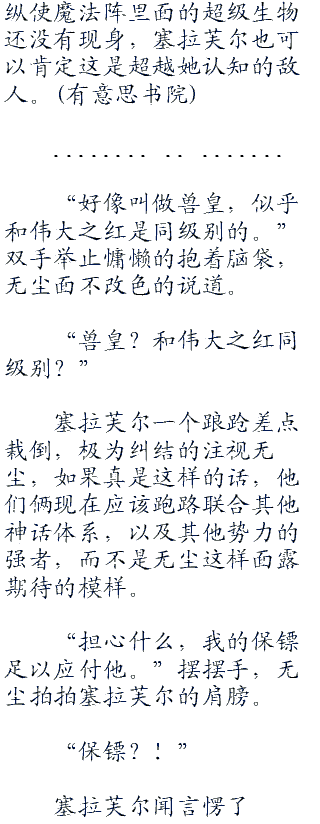 纵使魔法阵里面的超级生物
还没有现身，塞拉芙尔也可
以肯定这是超越她认知的敌
人。(有意思书院)
........ .. .......
“好像叫做兽皇，似乎
和伟大之红是同级别的。”
双手举止慵懒的抱着脑袋，
无尘面不改色的说道。
“兽皇？和伟大之红同
级别？”
塞拉芙尔一个踉跄差点
栽倒，极为纠结的注视无
尘，如果真是这样的话，他
们俩现在应该跑路联合其他
神话体系，以及其他势力的
强者，而不是无尘这样面露
期待的模样。
“担心什么，我的保镖
足以应付他。”摆摆手，无
尘拍拍塞拉芙尔的肩膀。
“保镖？！”
塞拉芙尔闻言愣了